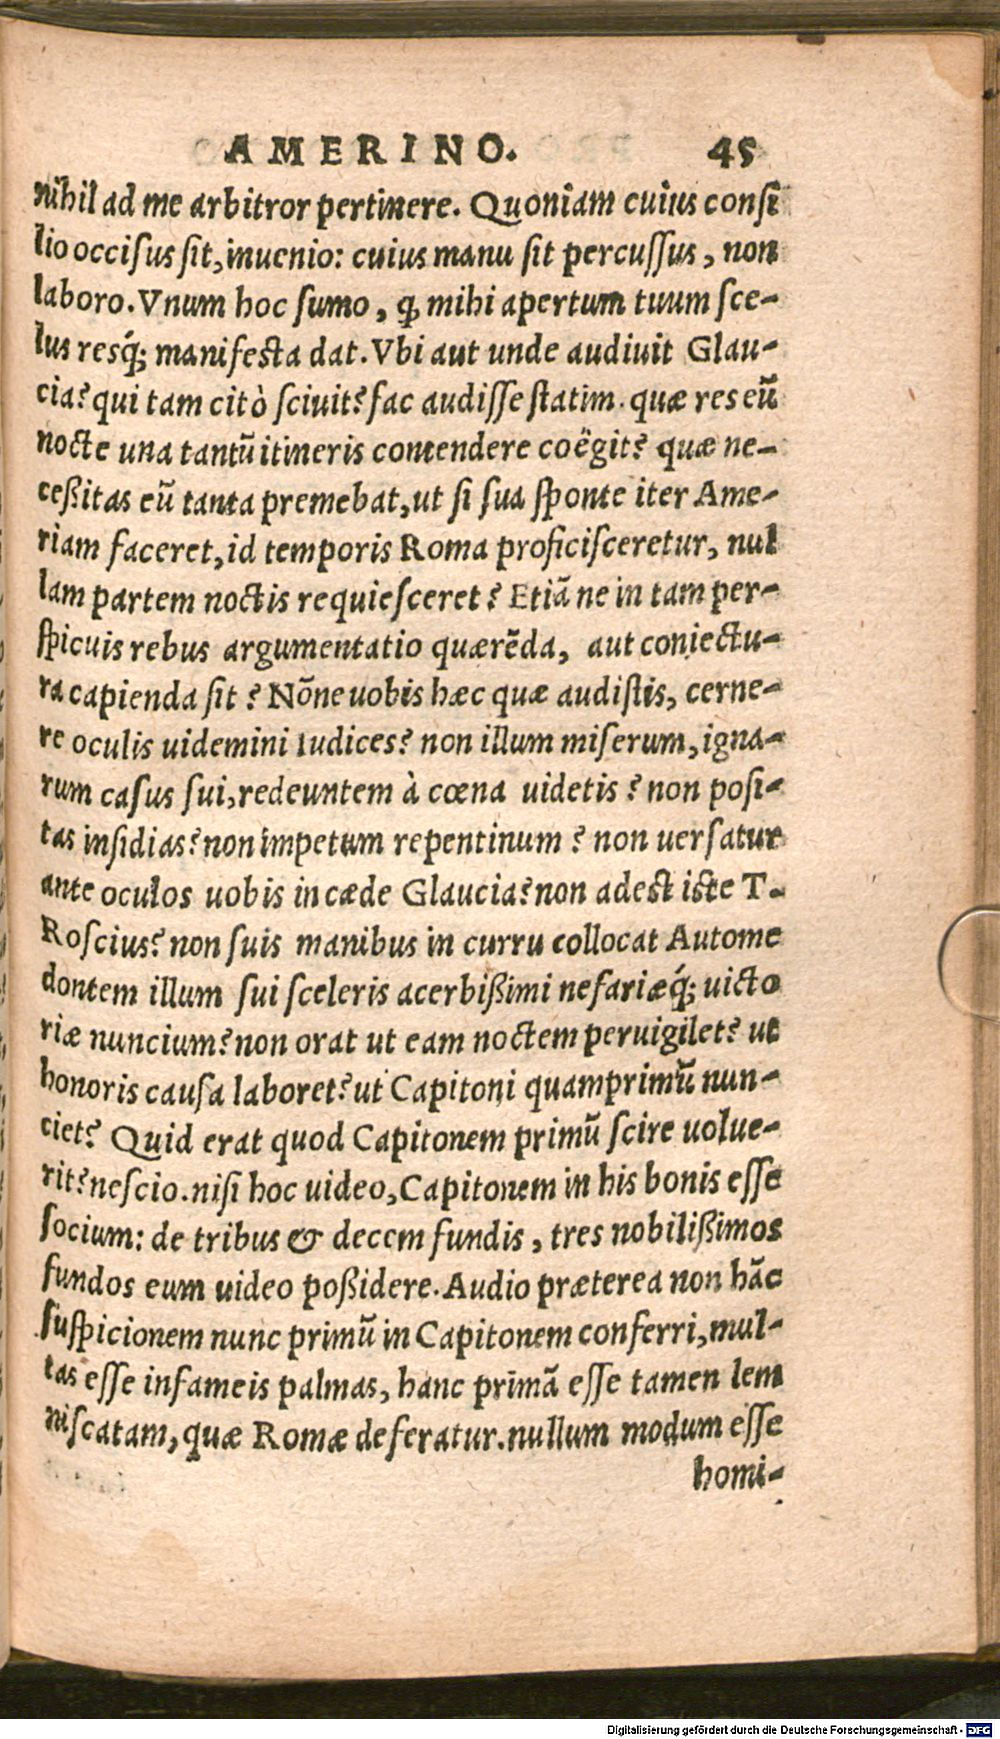 AMERINO. 45
nihil ad me arbitror pertinere. Quoniam cuius consi
lio occisus sit, inuenio: cuius manu sit percussus, non
laboro. Vnum hoc sumo, ꝙ mihi apertum tuum sce-
lus resq́; manifesta dat. Vbi aut unde audiuit Glau-
cia? qui tam citò sciuit? fac audisse statim. quæ res eũ
nocte una tantũ itineris contendere coëgit? quæ ne-
ceßitas eũ tanta premebat, ut si sua sponte iter Ame-
riam faceret, id temporis Roma proficisceretur, nul
lam partem noctis requiesceret? Etiã ne in tam per-
spicuis rebus argumentatio quærẽda, aut coniectu-
ra capienda sit? Nõne uobis hæc quæ audistis, cerne-
re oculis uidemini Iudices? non illum miserum, igna-
rum casus sui, redeuntem à cœna uidetis? non posi-
tas insidias? non impetum repentinum? non uersatur
ante oculos uobis in cæde Glaucia? non adest iste T.
Roscius? non suis manibus in curru collocat Autome
dontem illum sui sceleris acerbißimi nefariæq́; uicto
riæ nuncium? non orat ut eam noctem peruigilet? ut
honoris causa laboret? ut Capitoni quamprimũ nun-
ciet? Quid erat quod Capitonem primũ scire uolue-
rit? nescio. nisi hoc uideo, Capitonem in his bonis esse
socium: de tribus & decem fundis, tres nobilißimos
fundos eum uideo poßidere. Audio præterea non hãc
suspicionem nunc primũ in Capitonem conferri, mul-
tas esse infameis palmas, hanc primã esse tamen lem
niscatam, quæ Romæ deferatur. nullum modum esse
homi-
Digitalisierung gefördert durch die Deutsche Forschungsgemeinschaft - DFG